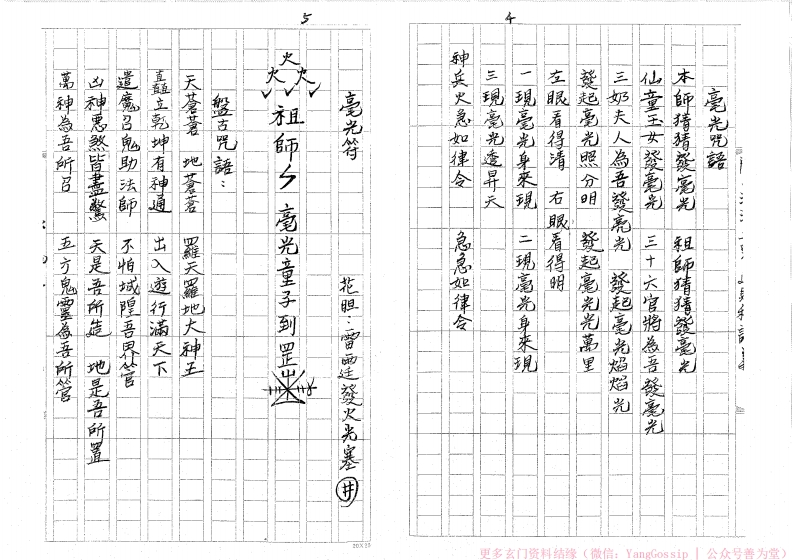 4
毫光咒語
本師猜猜發毫光 祖師猜猜發毫光
仙童玉女發毫光 三十六官將為吾發毫光
三奶夫人為吾發毫光 發起毫光焰焰光
發起毫光照分明 發起毫光光萬里
左眼看得清 右眼看得明
一現毫光身來現 二現毫光身來現
三現毫光透昇天
神兵火急如律令 急急如律令
5
毫光符 花胆：雷霆發火光塞 井
火 火 火
祖師 毫光童子到罡
盤古咒語：
天蒼蒼 地蒼蒼 羅天羅地大神王
矗立乾坤有神通 出入遊行滿天下
遣魔召鬼助法師 不怕城隍吾界管
凶神惡煞皆盡驚 天是吾所造 地是吾所置
萬神為吾所召 五方鬼靈為吾所管
20X20
更多玄门资料结缘（微信：YangGossip | 公众号善为堂）